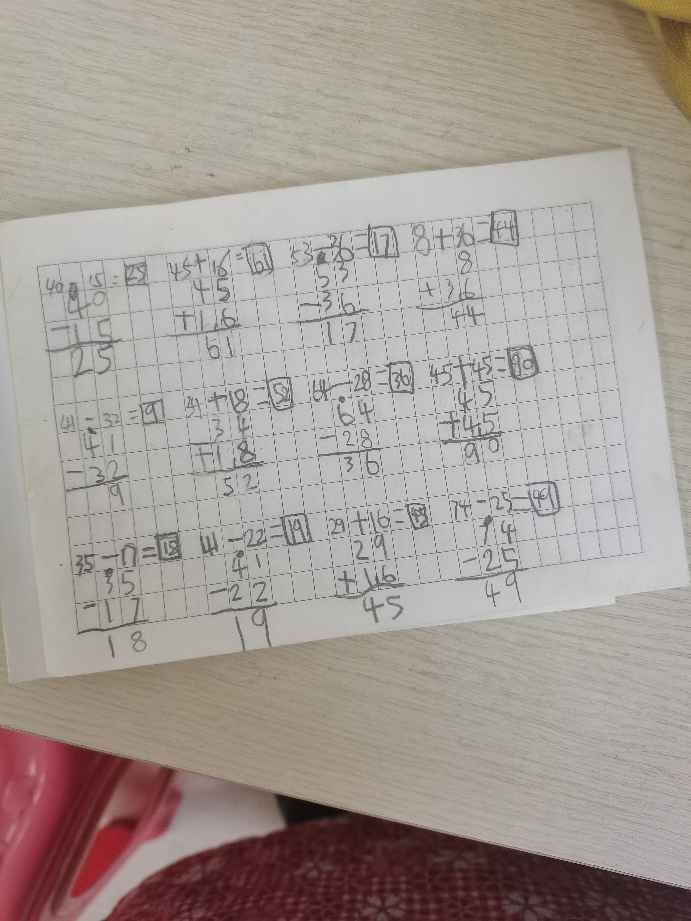 40-15=25 45+16=61 53-36=17 8+36=44
40 45 53 8
-15 +16 -36 +36
25 61 17 44
41-32=9 34+18=52 64-28=36 45+45=90
41 34 64 45
-32 +18 -28 +45
9 52 36 90
35-17=18 41-22=19 29+16=45 74-25=49
35 41 29 74
-17 -22 +16 -25
18 19 45 49